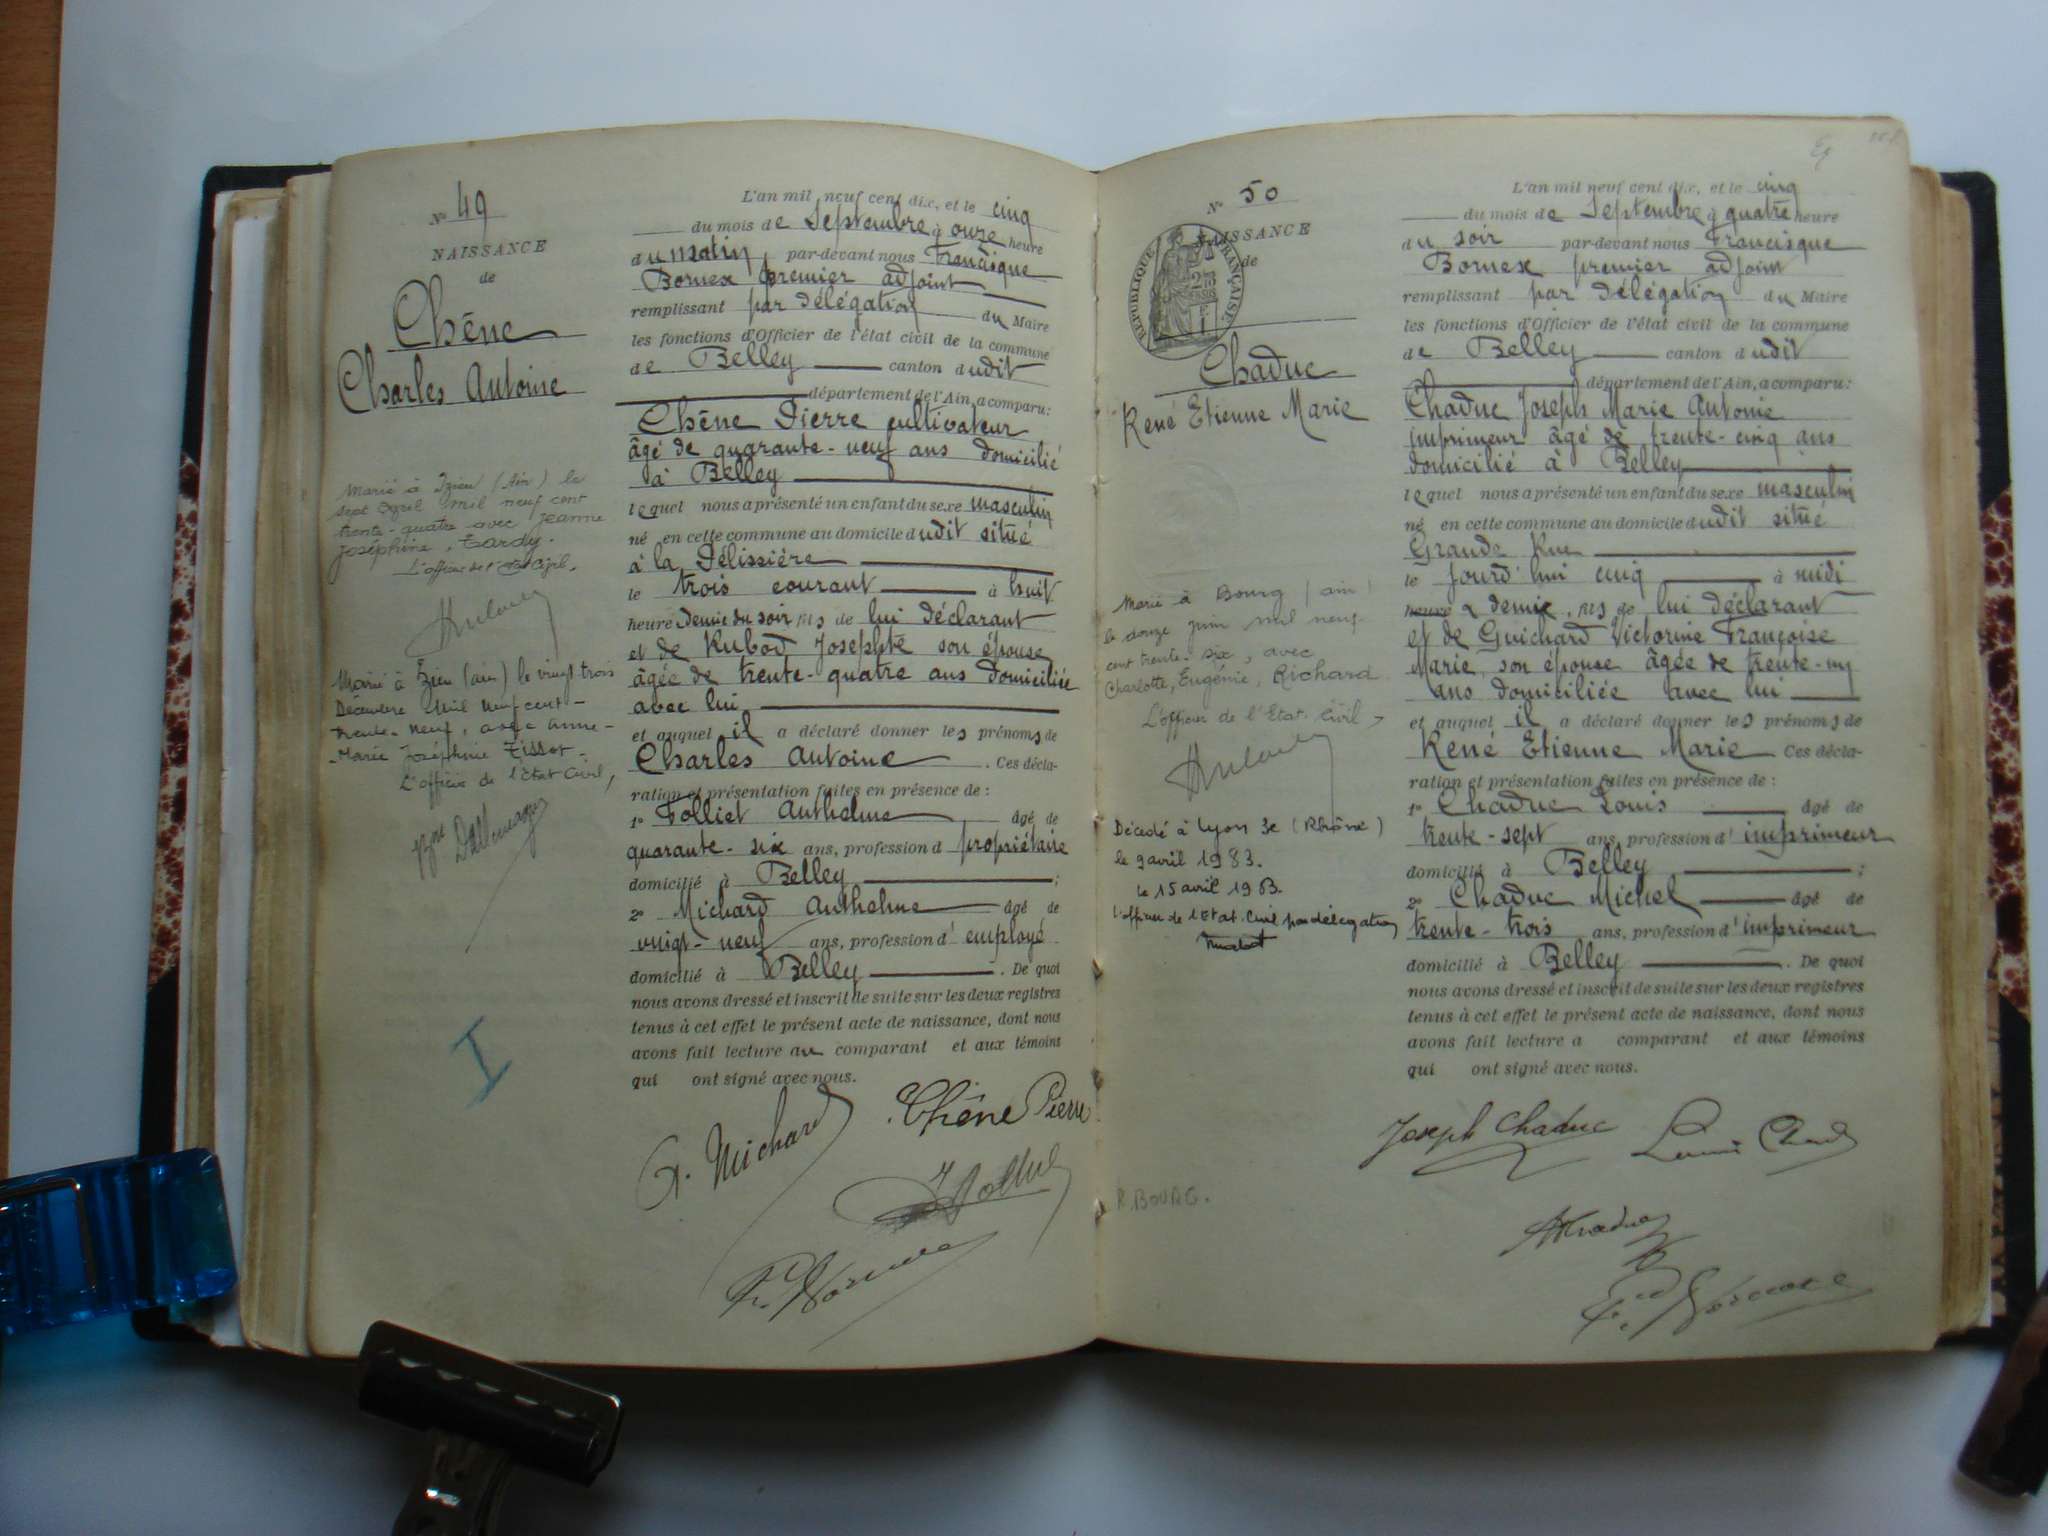 N° 49
NAISSANCE
de
Chêne
Charles Antoine
Marié à Izieu (Ain) le
sept avril mil neuf cent
trente-quatre avec Jeanne
Joséphine, Tardy.
L'officier de l'Etat Civil.
Marié à Izieu (ain) le vingt trois
Décembre Mil neuf cent-
trente-neuf, avec Anne-
-Marie Joséphine Tissot-
L'officier de l'Etat Civil,
I
L'an mil neuf cent dix, et le cinq
du mois de Septembre à onze heure
du matin, par-devant nous Francisque
Bornex premier adjoint
remplissant par délégation du Maire
les fonctions d'Officier de l'état civil de la commune
de Belley canton dudit
département de l'Ain, a comparu:
Chêne Pierre cultivateur
âgé de quarante-neuf ans domicilié
à Belley
lequel nous a présenté un enfant du sexe masculin
né en cette commune au domicile dudit situé
à la Pélissière
le trois courant à huit
heure demie du soir fils de lui déclarant
et de Rubod Josephte son épouse
âgée de trente-quatre ans domiciliée
avec lui
et auquel il a déclaré donner les prénoms de
Charles Antoine. Ces décla-
ration et présentation faites en présence de:
1° Folliet Anthelme âgé de
quarante-six ans, profession d propriétaire
domicilié à Belley;
2° Michard Anthelme âgé de
vingt-neuf ans, profession d'employé
domicilié à Belley. De quoi
nous avons dressé et inscrit de suite sur les deux registres
tenus à cet effet le présent acte de naissance, dont nous
avons fait lecture au comparant et aux témoins
qui ont signé avec nous.
A. Michard Chêne Pierre
N° 50
NAISSANCE
de
RÉPUBLIQUE FRANÇAISE
Chaduc
René Etienne Marie
Marié à Bourg (ain)
le douze juin mil neuf
cent trente-six, avec
Charlotte, Eugénie, Richard
L'officier de l'Etat Civil
Décédé à Lyon 3e (Rhône)
le 9 avril 1983.
le 15 avril 1983.
l'officier de l'Etat Civil par délégation
R. BOURG.
L'an mil neuf cent dix, et le cinq
du mois de Septembre à quatre heure
du soir par-devant nous Francisque
Bornex premier adjoint
remplissant par délégation du Maire
les fonctions d'Officier de l'état civil de la commune
de Belley canton dudit
département de l'Ain, a comparu:
Chaduc Joseph Marie Antonie
imprimeur âgé de trente-cinq ans
domicilié à Belley
lequel nous a présenté un enfant du sexe masculin
né en cette commune au domicile dudit situé
Grande Rue
le jourd'hui cinq à midi
heure & demie, fils de lui déclarant
et de Guichard Victorine Françoise
Marie, son épouse âgée de trente-un
ans domiciliée avec lui
et auquel il a déclaré donner les prénoms de
René Etienne Marie Ces décla-
ration et présentation faites en présence de:
1° Chaduc Louis âgé de
trente-sept ans, profession d'imprimeur
domicilié à Belley;
2° Chaduc Michel âgé de
trente-trois ans, profession d'imprimeur
domicilié à Belley. De quoi
nous avons dressé et inscrit de suite sur les deux registres
tenus à cet effet le présent acte de naissance, dont nous
avons fait lecture a comparant et aux témoins
qui ont signé avec nous.
Joseph Chaduc Louis Chaduc